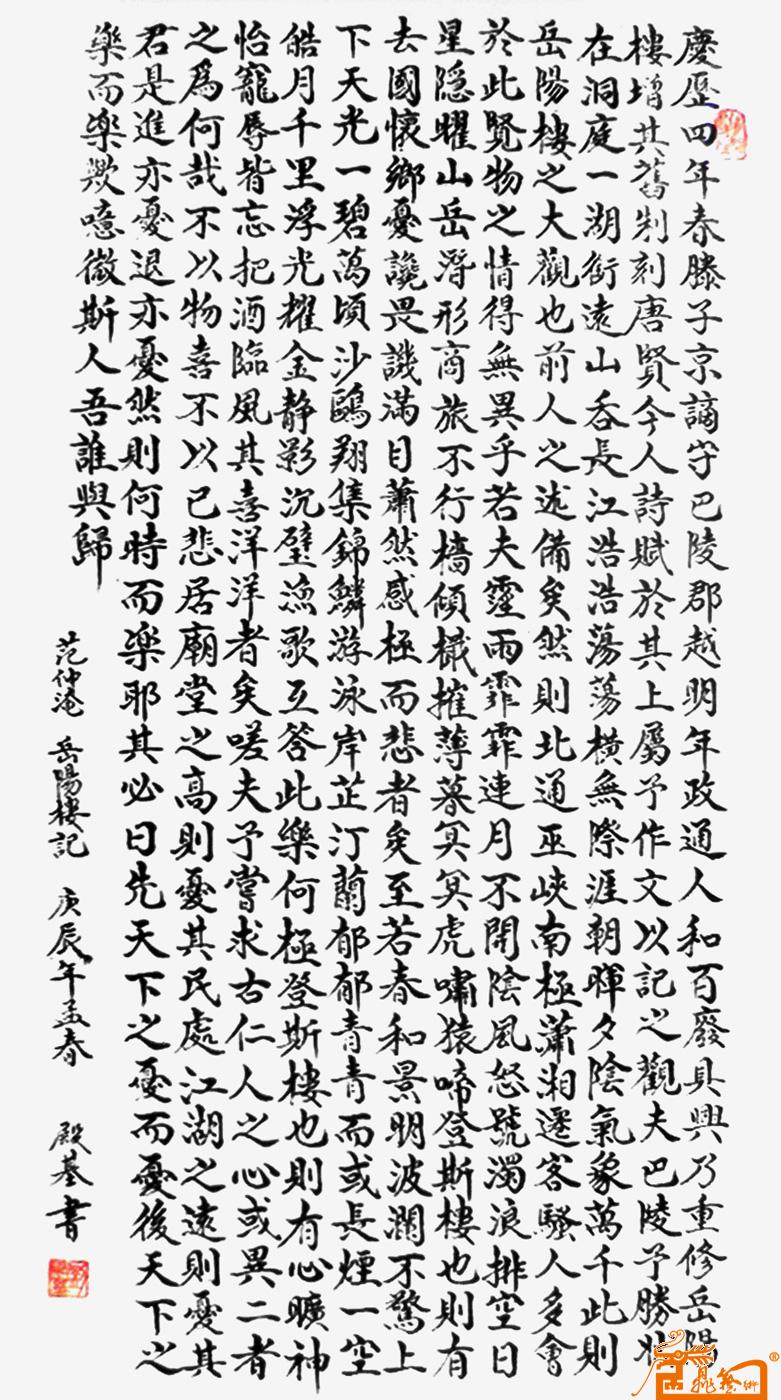 慶歷四年春滕子京謫守巴陵郡越明年政通人和百廢具興乃重修岳陽
樓增其舊制刻唐賢今人詩賦於其上屬予作文以記之觀夫巴陵予勝狀
在洞庭一湖銜遠山吞長江浩浩蕩蕩橫無際涯朝暉夕陰氣象萬千此則
岳陽樓之大觀也前人之述備矣然則北通巫峽南極瀟湘遷客騷人多會
於此覽物之情得無異乎若夫霪雨霏霏連月不開陰風怒號濁浪排空日
星隱曜山岳潛形商旅不行檣傾檝摧薄暮冥冥虎嘯猿啼登斯樓也則有
去國懷鄉憂讒畏譏滿目蕭然感極而悲者矣至若春和景明波瀾不驚上
下天光一碧萬頃沙鷗翔集錦鱗游泳岸芷汀蘭郁郁青青而或長煙一空
皓月千里浮光耀金静影沉璧漁歌互答此樂何極登斯樓也則有心曠神
怡寵辱皆忘把酒臨風其喜洋洋者矣嗟夫予嘗求古仁人之心或異二者
之爲何哉不以物喜不以己悲居廟堂之高則憂其民處江湖之遠則憂其
君是進亦憂退亦憂然則何時而樂耶其必曰先天下之憂而憂後天下之
樂而樂歟噫微斯人吾誰與歸
范仲淹 岳陽樓記 庚辰年孟春 殿基書